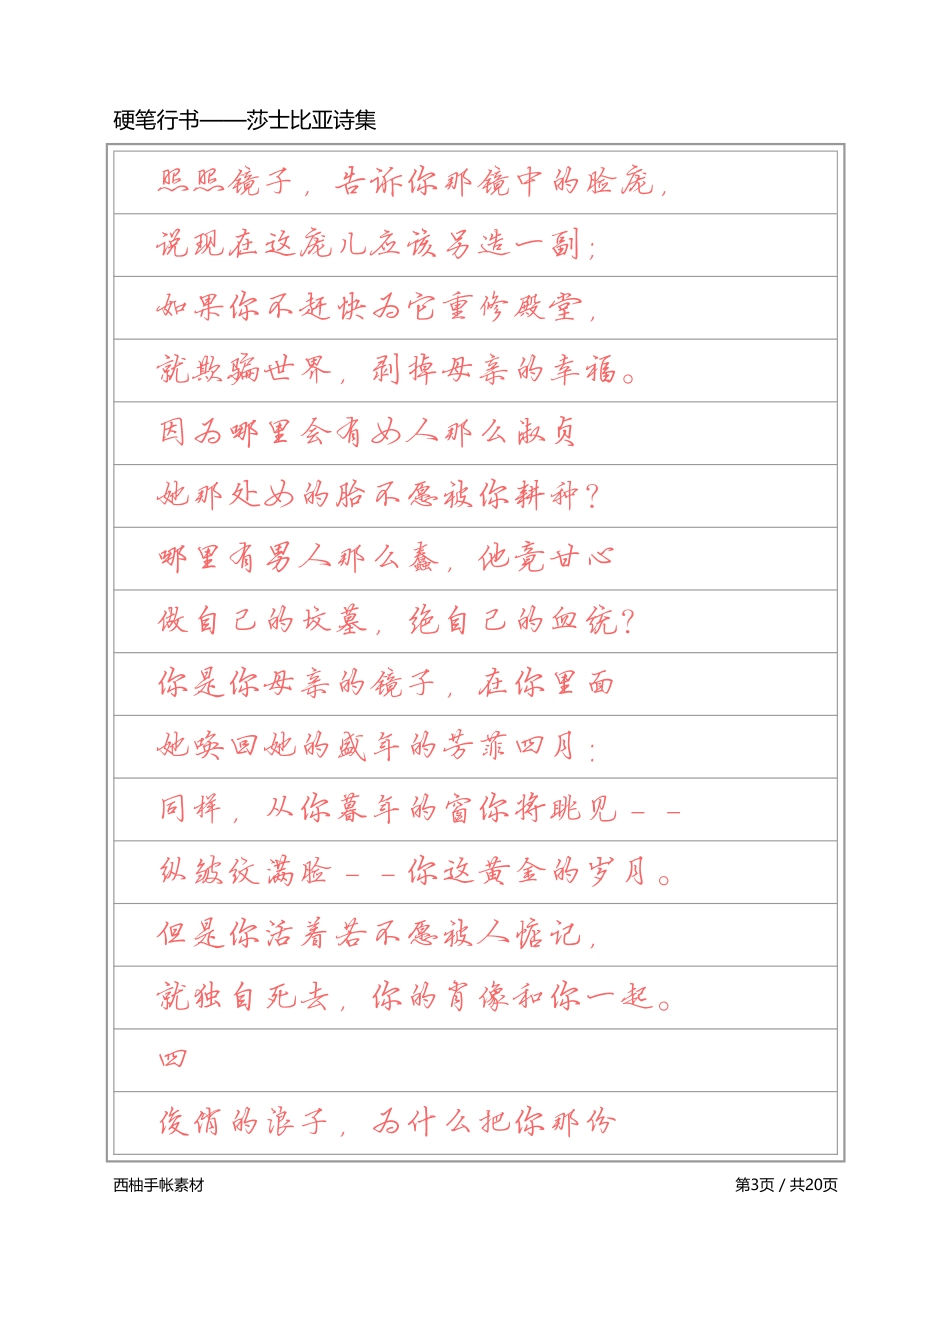 硬笔行书——莎士比亚诗集
照照镜子，告诉你那镜中的脸庞，
说现在这庞儿应该另造一副；
如果你不赶快为它重修殿堂，
就欺骗世界，剥掉母亲的幸福。
因为哪里会有女人那么淑贞
她那处女的胎不愿被你耕种？
哪里有男人那么蠢，他竟甘心
做自己的坟墓，绝自己的血统？
你是你母亲的镜子，在你里面
她唤回她的盛年的芳菲四月：
同样，从你暮年的窗你将眺见--
纵皱纹满脸--你这黄金的岁月。
但是你活着若不愿被人惦记，
就独自死去，你的肖像和你一起。
四
俊俏的浪子，为什么把你那份
西柚手帐素材 第3页 / 共20页